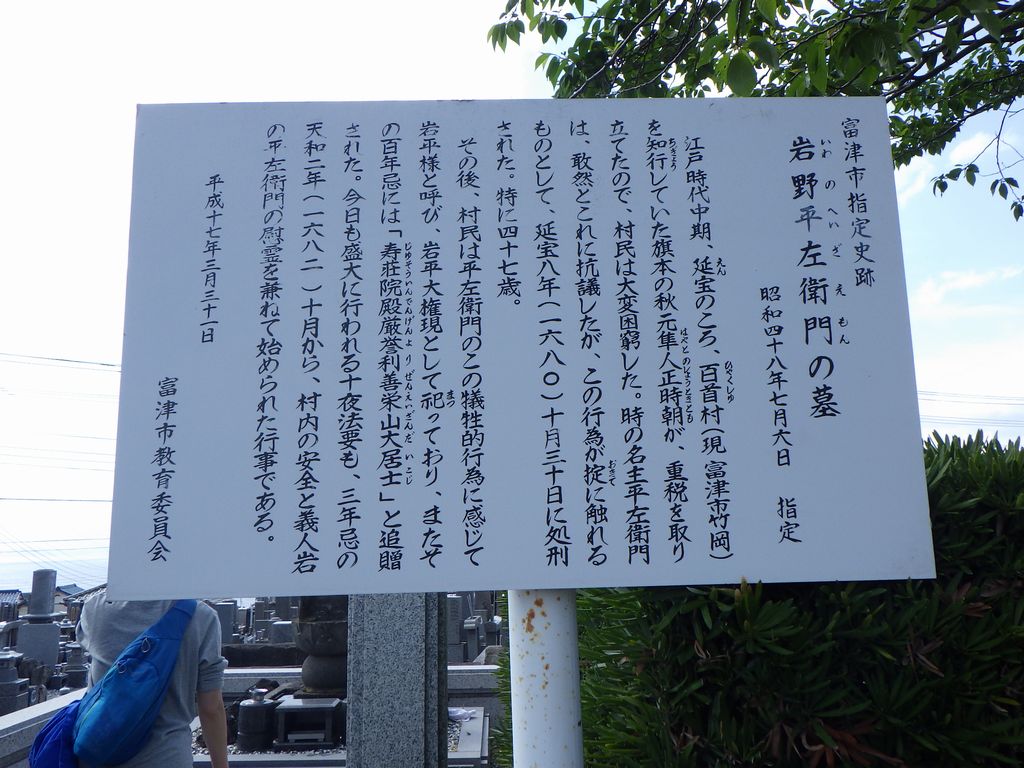 富津市指定史跡
岩野平左衛門の墓
いわのへいざえもん
昭和四十八年七月六日　指定
江戸時代中期、延宝のころ、百首村（現 富津市竹岡）
えん　ひゃくしゅ
を知行していた旗本の秋元隼人正時朝が、重税を取り
ちぎょう　はやとのしょうときとも
立てたので、村民は大変困窮した。時の名主平左衛門
は、敢然とこれに抗議したが、この行為が掟に触れる
おきて
ものとして、延宝八年（一六八〇）十月三十日に処刑
された。特に四十七歳。
その後、村民は平左衛門のこの犠牲的行為に感じて
岩平様と呼び、岩平大権現として祀っており、またそ
まつ
の百年忌には「寿荘院殿厳誉利善栄山大居士」と追贈
じゅそういんでんげんよりぜんえいざんだいこじ
された。今日も盛大に行われる十夜法要も、三年忌の
天和二年（一六八二）十月から、村内の安全と義人岩
の平左衛門の慰霊を兼ねて始められた行事である。
平成十七年三月三十一日
富津市教育委員会